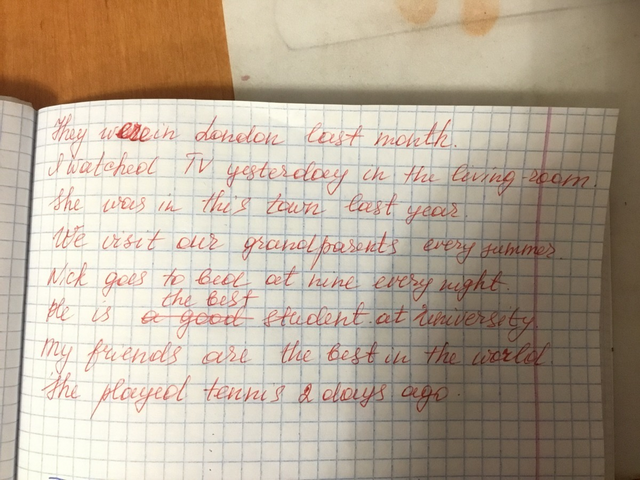 They were in London last month.
I watched TV yesterday in the living-room.
She was in this town last year.
We visit our grandparents every summer.
Nick goes to bed at nine every night.
the best
He is a good student at University.
My friends are the best in the world.
She played tennis 2 days ago.